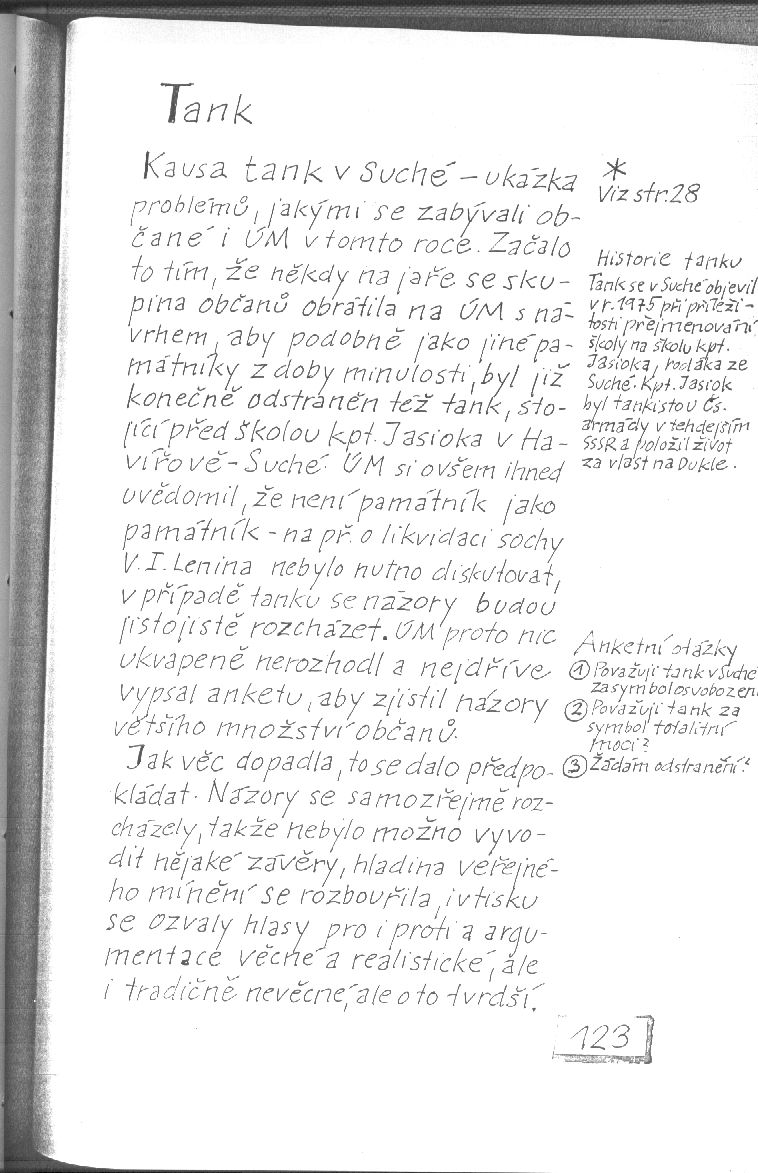 Tank
Kausa tank v Suché – ukázka
problémů, jakými se zabývali ob-
čané i ÚM v tomto roce. Začalo
to tím, že někdy na jaře se sku-
pina občanů obrátila na ÚM s ná-
vrhem, aby podobně jako jiné pa-
mátníky z doby minulosti, byl již
konečně odstraněn též tank, sto-
jící před školou kpt. Jasioka v Ha-
vířově – Suché. ÚM si ovšem ihned
uvědomil, že není památník jako
památník – na př. o likvidaci sochy
V. I. Lenina nebylo nutno diskutovat,
v případě tanku se názory budou
jistojistě rozcházet. ÚM proto nic
ukvapeně nerozhodl a nejdříve
vypsal anketu, aby zjistil názory
většího množství občanů.
Jak věc dopadla, to se dalo předpo-
kládat. Názory se samozřejmě roz-
cházely, takže nebylo možno vyvo-
dit nějaké závěry, hladina veřejné-
ho mínění se rozbouřila, i v tisku
se ozvaly hlasy pro i proti a argu-
mentace věcné a realistické, ale
i tradičně nevěcné, ale o to tvrdší.
*
Viz str. 28
Historie tanku
Tank se v Suché objevil
v r. 1975 při příleži-
tosti přejmenování
školy na školu kpt.
Jasioka, rodáka ze
Suché. Kpt. Jasiok
byl tankistou Čs.
armády v tehdejším
SSSR a položil život
za vlast na Dukle.
Anketní otázky
① Považuji tank v Suché
za symbol osvobozen
② Považuji tank za
symbol totalitní
moci?
③ Žádám odstranění?
123